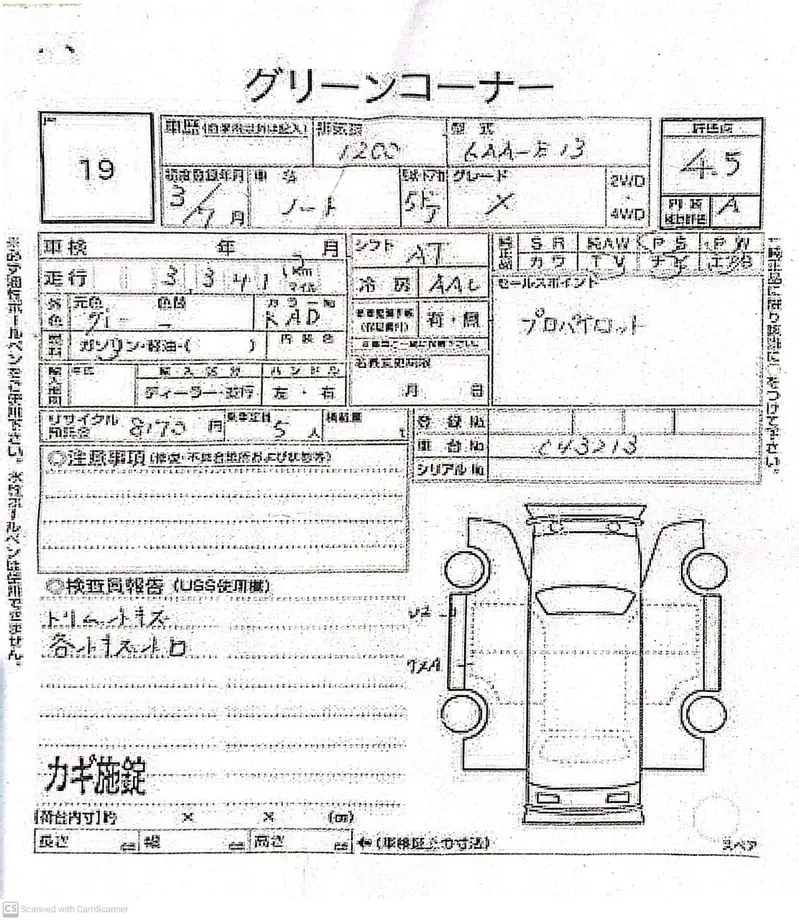 グリーンコーナー
19
車歴 (自家用以外は記入)
排気量
1200
型式
6AA-E13
評価点
4.5
内装
A
初度登録年月
3/7月
車名
ノート
5ド
ア
グレード
X
2WD
・
4WD
車検 年 月
走行
3,341
km
マイル
シフト
AT
冷房
AAC
純正品
SR
AW
PS
PW
カワ
TV
ナビ
エアB
セールスポイント
プロパイロット
外色
元色
グレー
色替
カラーNo
KAD
燃料
ガソリン・軽油・( )
内装色
有・無
名義変更期限
月 日
ディーラー・並行
ハンドル
左・右
リサイクル
預託金
8170円
乗車定員
5人
積載量
t
登録No
車台No
C43213
シリアルNo
◎注意事項
◎検査員報告 (USS使用欄)
トリム小キズ
各小キズ小凹
U2
カギ施錠
[荷台内寸]約 × × (cm)
長さ cm
幅 cm
高さ cm
スペア
※必ず油性ボールペンをご使用下さい。水性ボールペンは使用できません。
CS Scanned with CamScanner